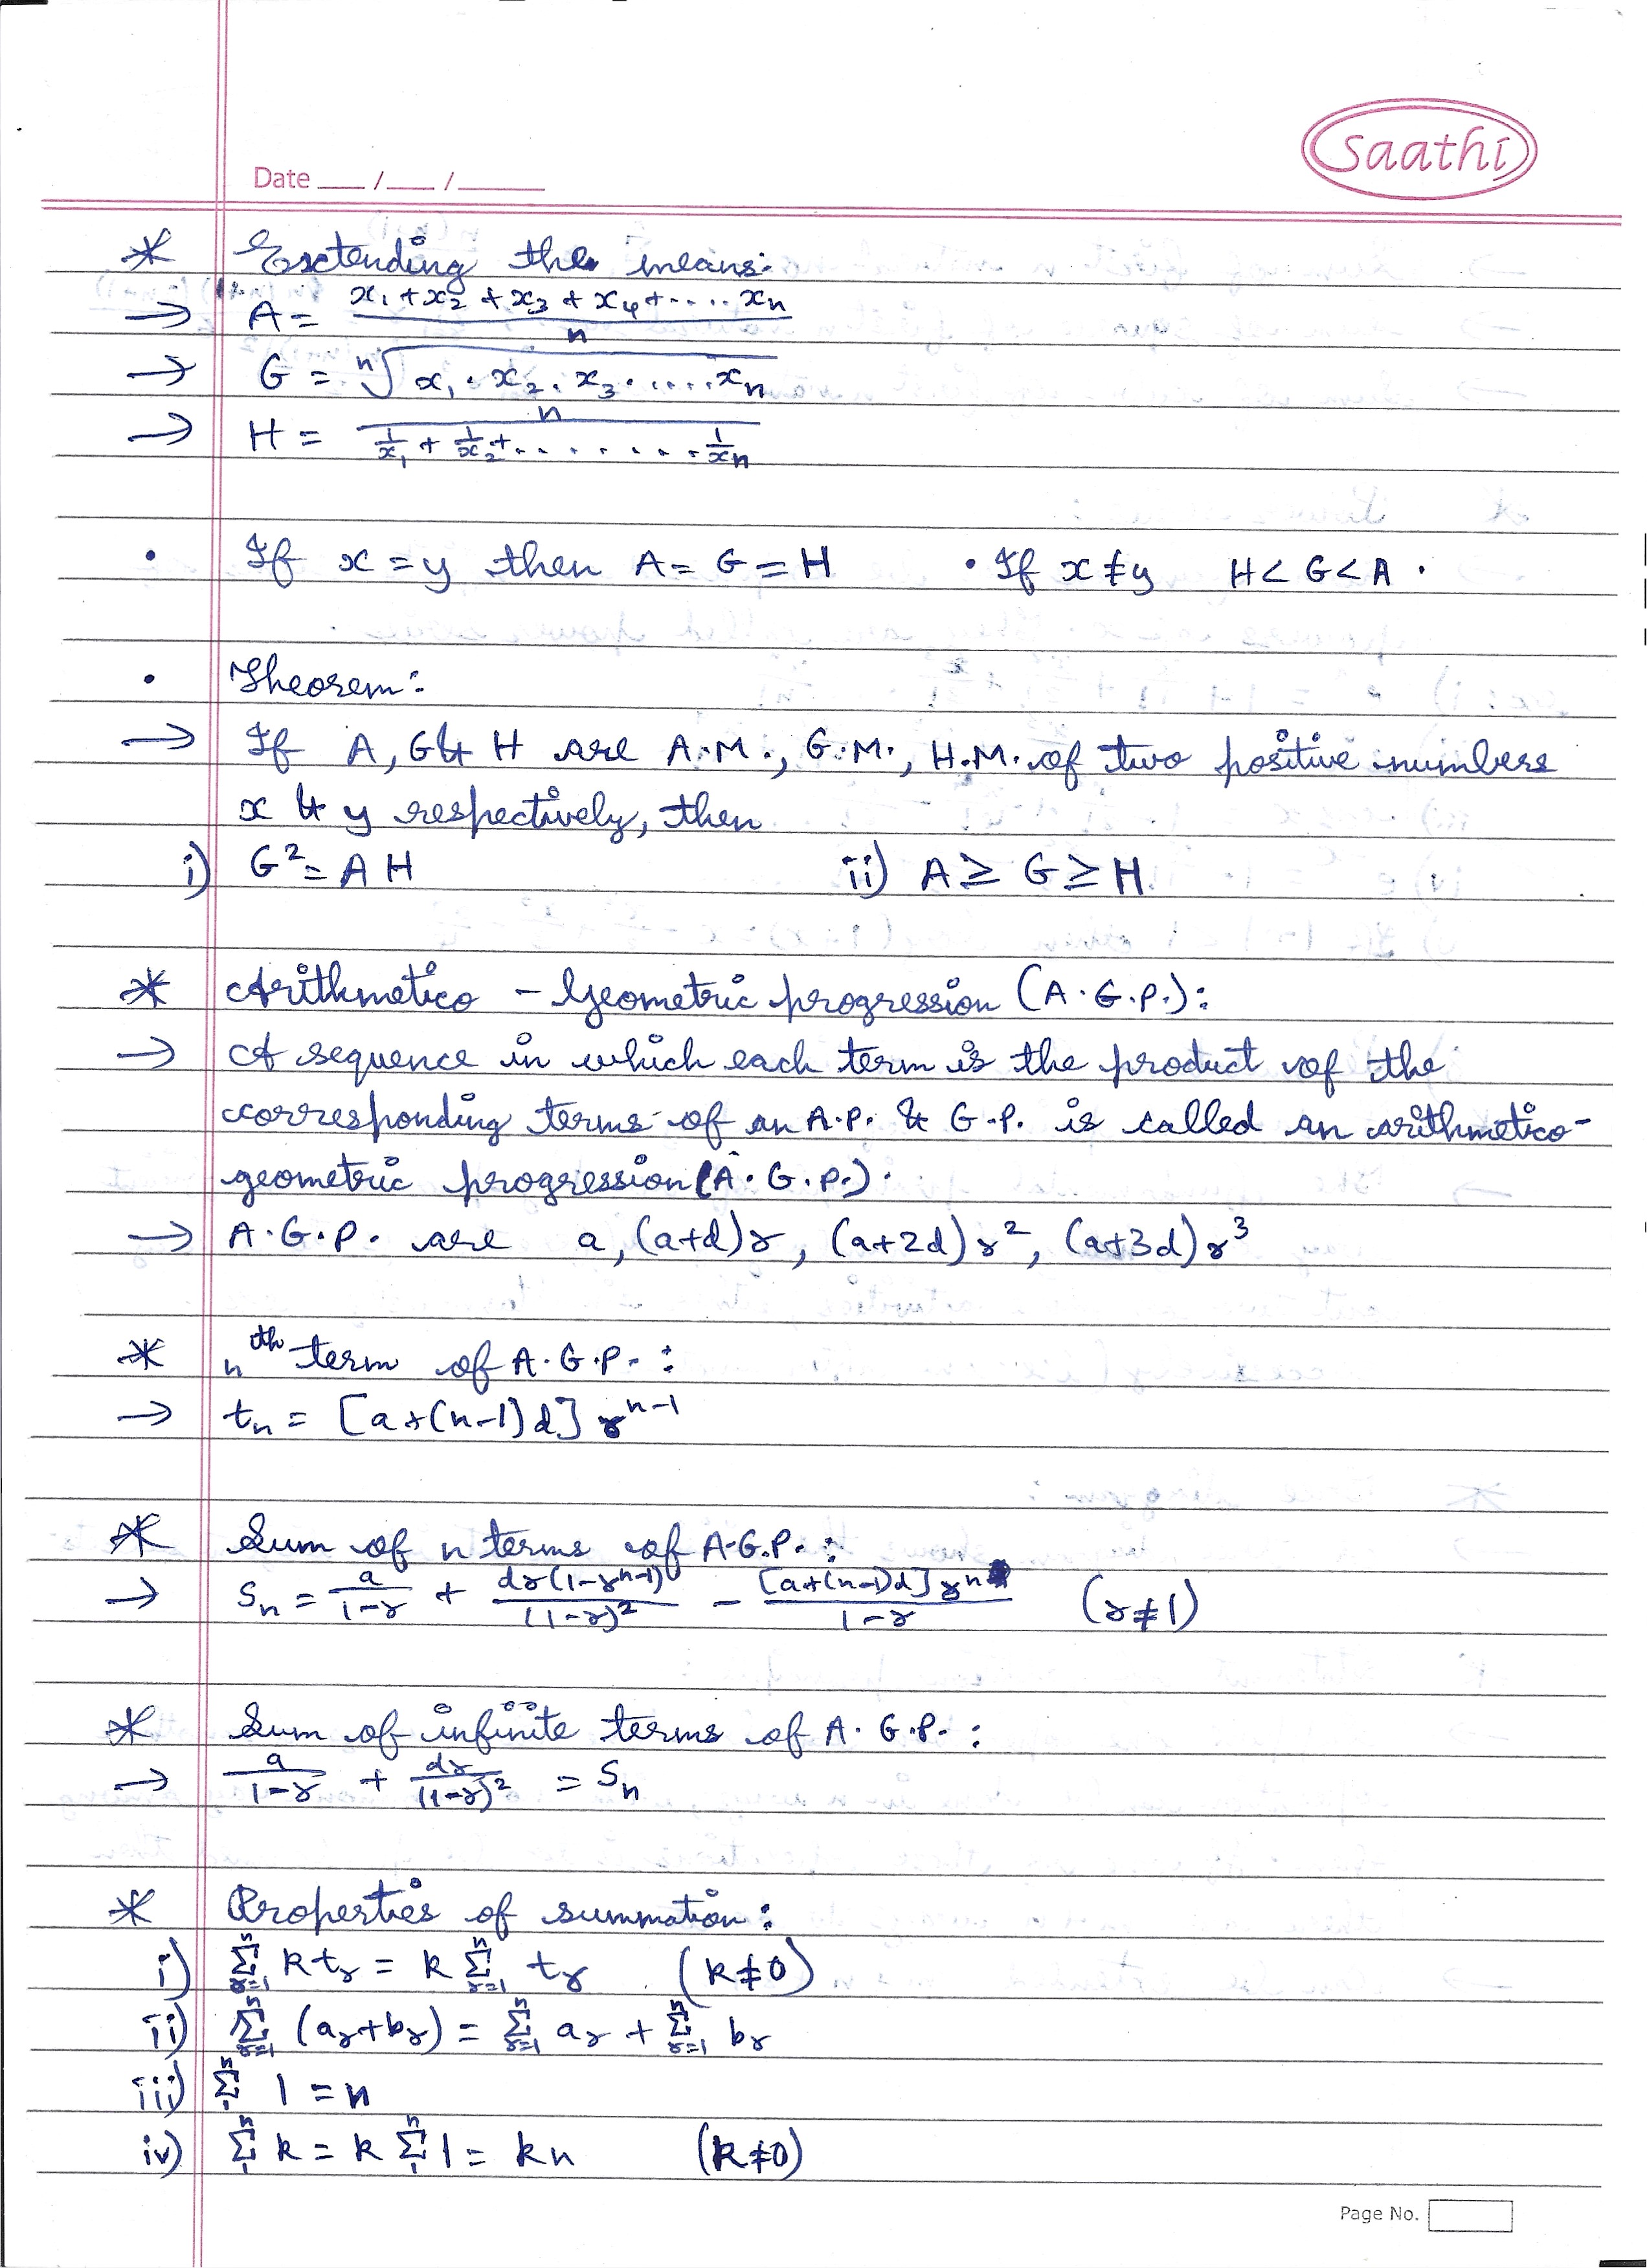 Saathi
Date ___/___/_____
* Extending the means:
→ A = (x₁ + x₂ + x₃ + x₄ + ..... xₙ) / n
→ G = ⁿ√(x₁ · x₂ · x₃ · ..... xₙ)
→ H = n / (1/x₁ + 1/x₂ + ........ 1/xₙ)
• If x = y then A = G = H • If x ≠ y H < G < A .
• Theorem:
→ If A, G & H are A.M., G.M., H.M. of two positive numbers
x & y respectively, then
i) G² = A H ii) A ≥ G ≥ H
* Arithmetico - Geometric progression (A.G.P.):
→ A sequence in which each term is the product of the
corresponding terms of an A.P. & G.P. is called an arithmetico-
geometric progression (A.G.P.).
→ A.G.P. are a, (a+d)r, (a+2d)r², (a+3d)r³
* nᵗʰ term of A.G.P. :
→ tₙ = [a+(n-1)d] rⁿ⁻¹
* Sum of n terms of A.G.P. :
→ Sₙ = a/(1-r) + dr(1-rⁿ⁻¹)/(1-r)² - [a+(n-1)d] rⁿ/(1-r) (r ≠ 1)
* Sum of infinite terms of A.G.P. :
→ a/(1-r) + dr/(1-r)² = Sₙ
* Properties of summation:
i) ⁿΣᵣ₌₁ k tᵣ = k ⁿΣᵣ₌₁ tᵣ (k ≠ 0)
ii) ⁿΣᵣ₌₁ (aᵣ + bᵣ) = ⁿΣᵣ₌₁ aᵣ + ⁿΣᵣ₌₁ bᵣ
iii) ⁿΣ₁ 1 = n
iv) ⁿΣ₁ k = k ⁿΣ₁ 1 = kn (k ≠ 0)
Page No.